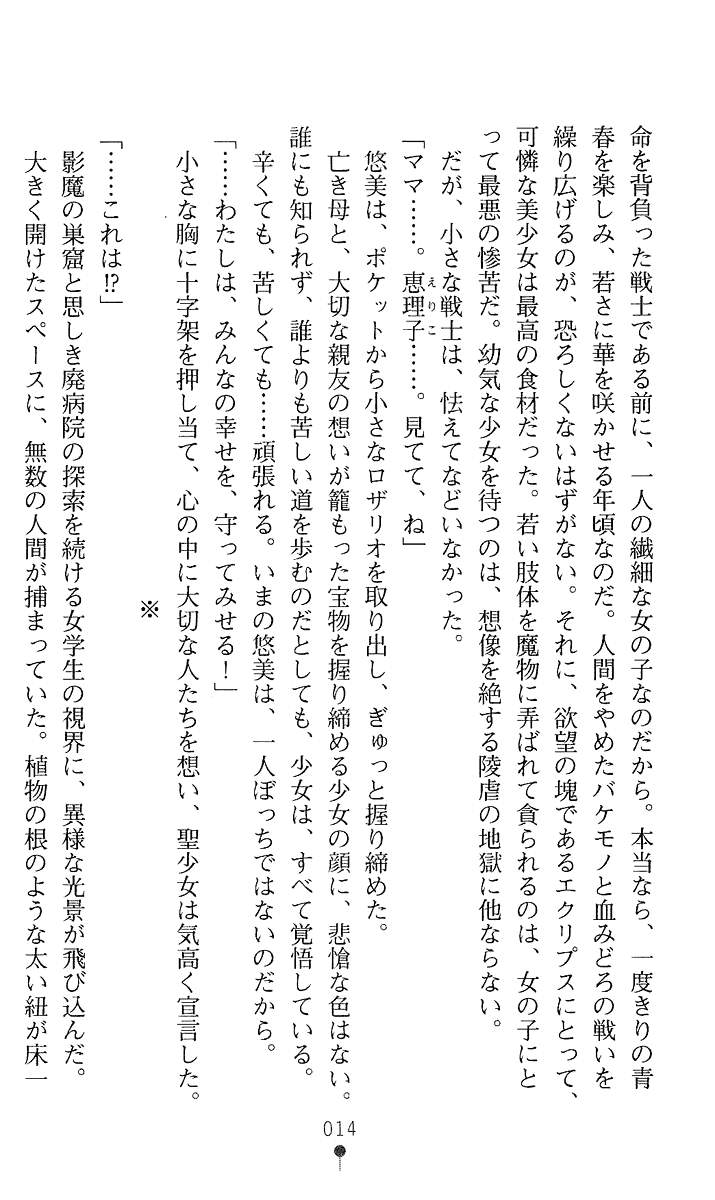 命を背負った戦士である前に、一人の繊細な女の子なのだから。本当なら、一度きりの青
春を楽しみ、若さに華を咲かせる年頃なのだ。人間をやめたバケモノと血みどろの戦いを
繰り広げるのが、恐ろしくないはずがない。それに、欲望の塊であるエクリプスにとって、
可憐な美少女は最高の食材だった。若い肢体を魔物に弄ばれて貪られるのは、女の子にと
って最悪の惨苦だ。幼気な少女を待つのは、想像を絶する陵虐の地獄に他ならない。
だが、小さな戦士は、怯えてなどいなかった。
「ママ……。恵理子……。見てて、ね」
えりこ
悠美は、ポケットから小さなロザリオを取り出し、ぎゅっと握り締めた。
亡き母と、大切な親友の想いが籠もった宝物を握り締める少女の顔に、悲愴な色はない。
誰にも知られず、誰よりも苦しい道を歩むのだとしても、少女は、すべて覚悟している。
辛くても、苦しくても……頑張れる。いまの悠美は、一人ぼっちではないのだから。
「……わたしは、みんなの幸せを、守ってみせる！」
小さな胸に十字架を押し当て、心の中に大切な人たちを想い、聖少女は気高く宣言した。
※
「……これは!?」
影魔の巣窟と思しき廃病院の探索を続ける女学生の視界に、異様な光景が飛び込んだ。
大きく開けたスペースに、無数の人間が捕まっていた。植物の根のような太い紐が床一
014